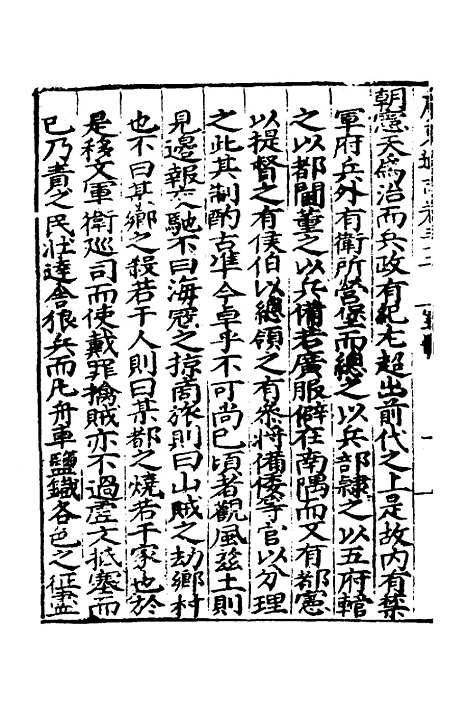 廣東通志卷三十一
朝憲天爲治而兵政有紀尤超出前代之上是故内有禁
軍府兵外有衛所營堡而總之以兵部隷之以五府轄
之以都閫董之以兵備若廣服僻在南隅而又有都憲
以提督之有侯伯以總領之有叅將備倭等官以分理
之此其制酌古准今卓乎不可尚已頃者觀風兹土則
見邊報交馳不曰海寇之掠商旅則曰山賊之劫鄉村
也不曰某鄉之殺若干人則曰某都之燒若干家也於
是移文軍衛巡司而使戴罪擒賊亦不過虛文抵塞而
已乃責之民壯達舍狼兵而凡舟車鹽鐵各色之征盡